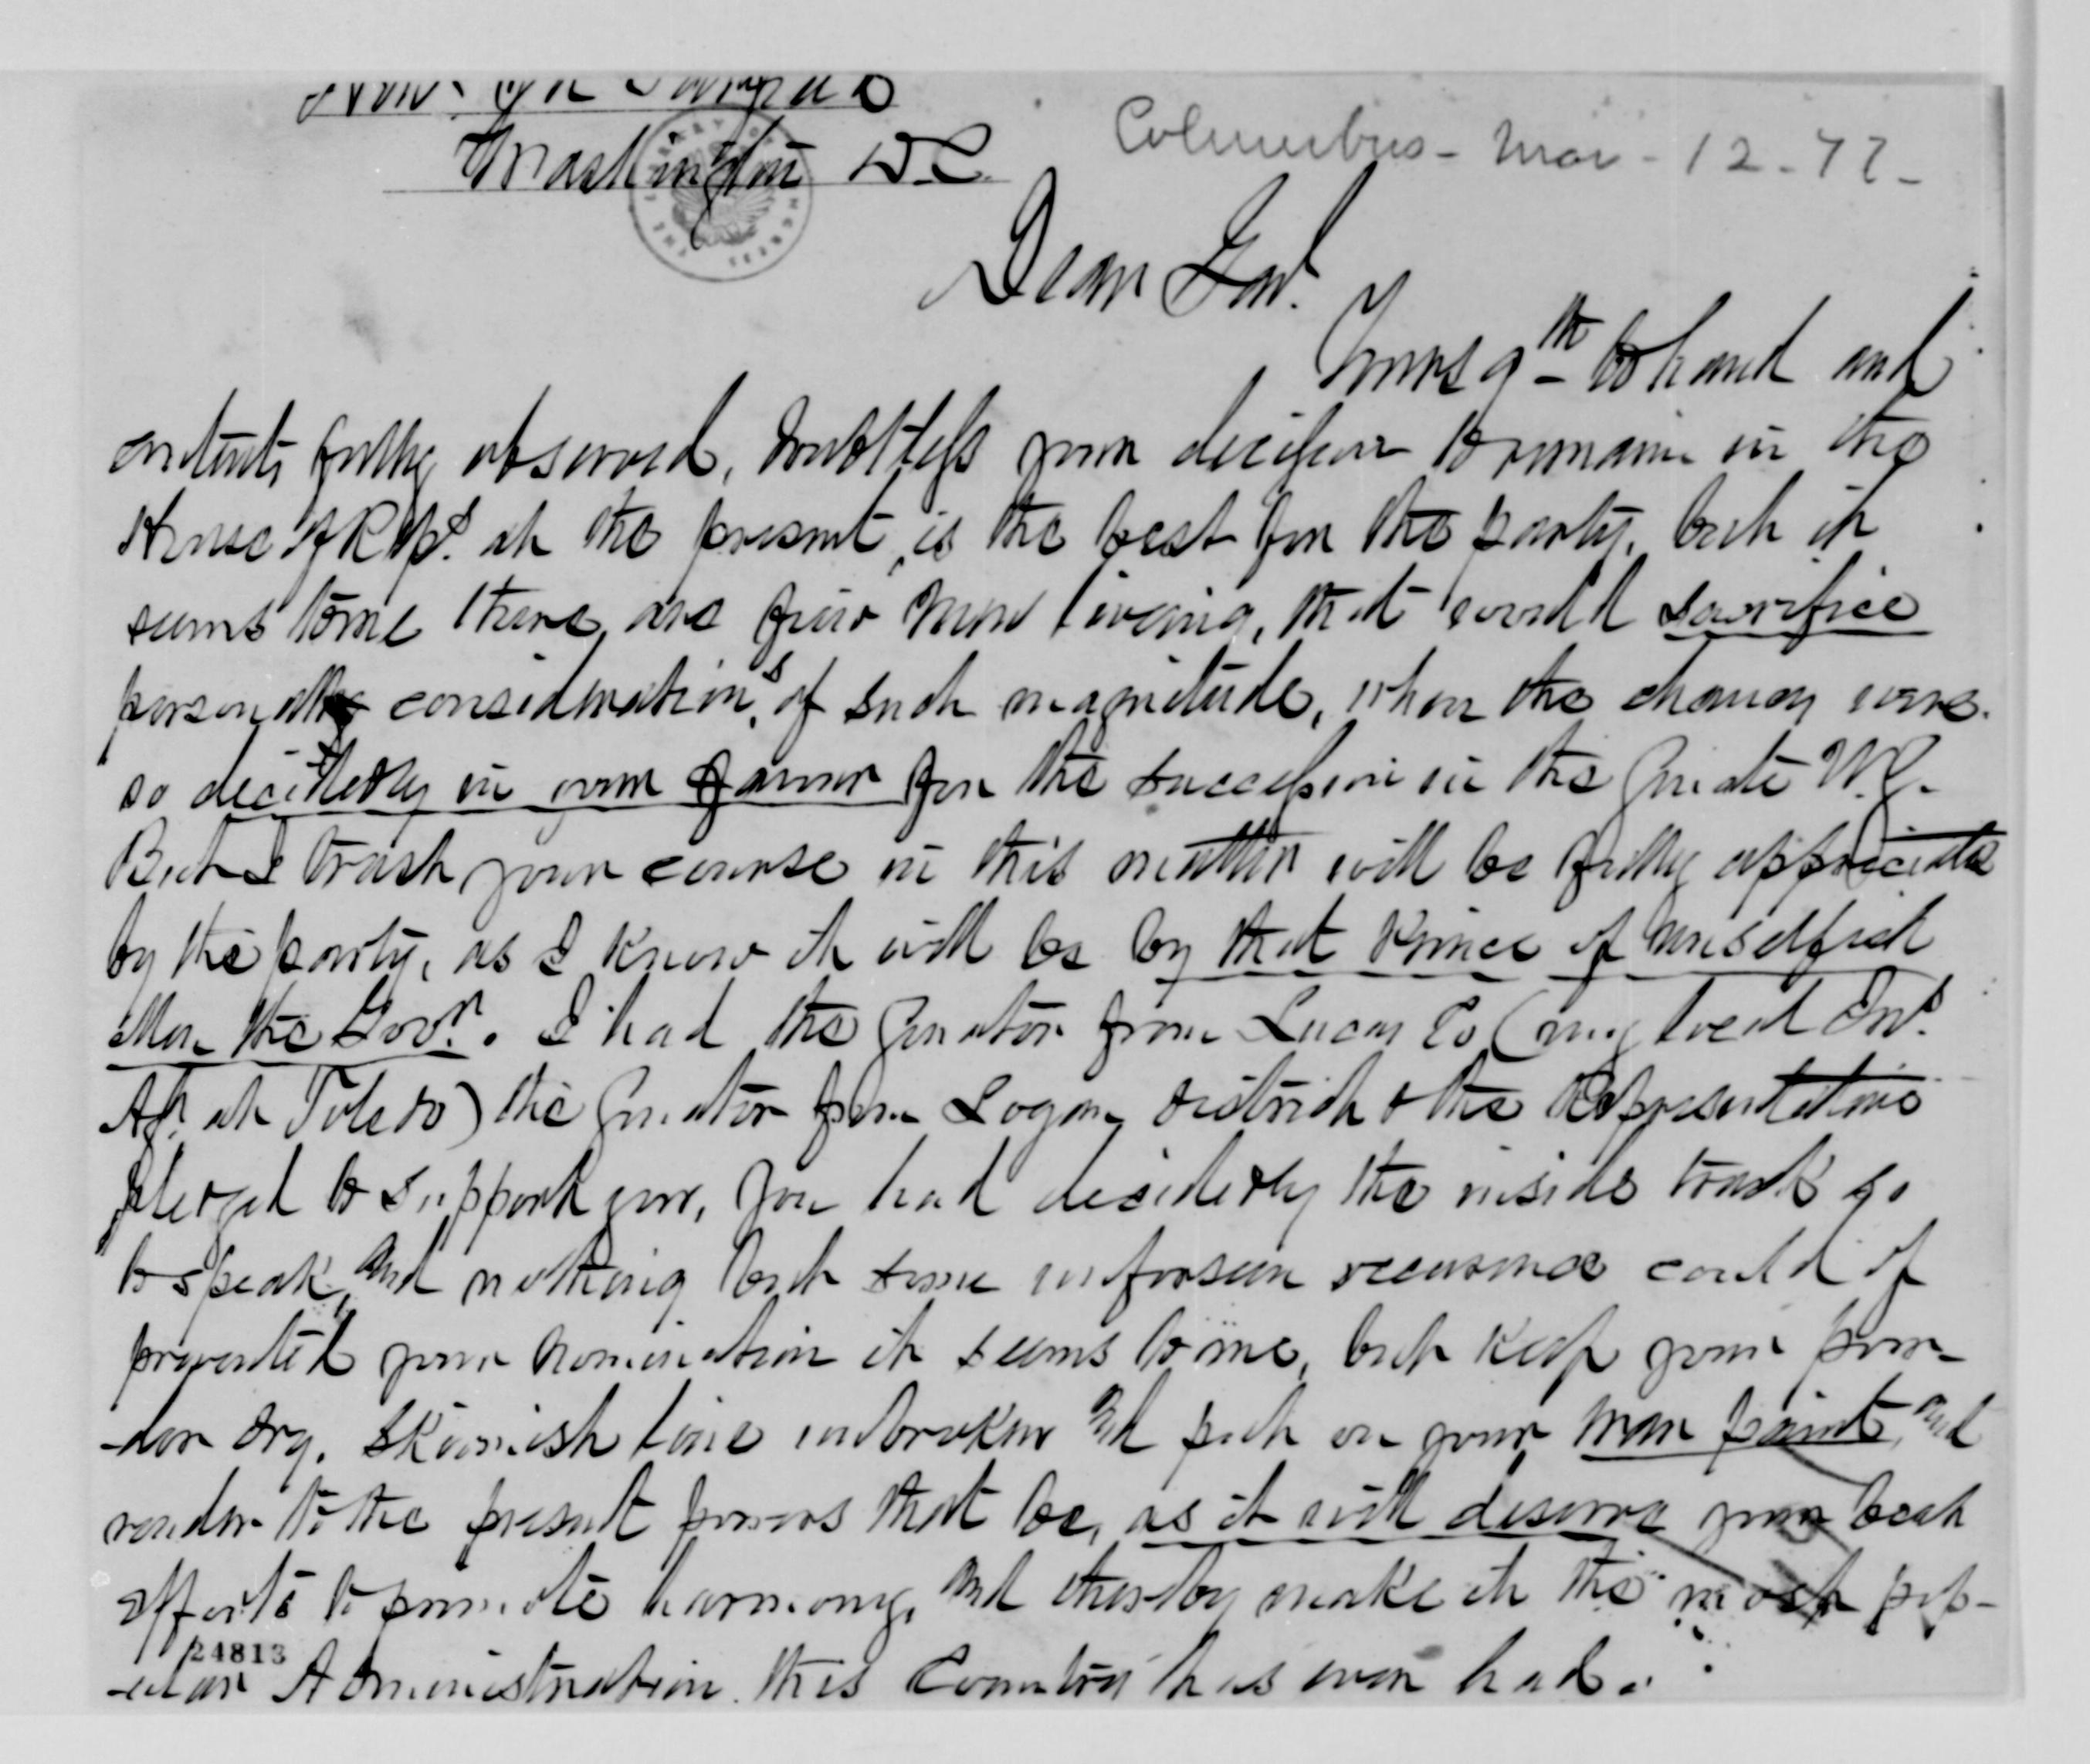 Hon. Jas A Garfield
Washington D.C.
Columbus - Mar - 12 - 77 -
Dear Gen!
Yours 9th to hand and
contents fully observed, doubtless your decision to remain in the
House of Reps. at the present, is the best for the party, but it
seems to me there are few men living, that would sacrifice
personal considerations, of such magnitude, when the chances were
so decidedly in your favor for the succession in the Senate
But I trust your course in this matter will be fully appreciated
by the party, as I know it will be by that Prince of unselfish
Men the Govr. I had the Senator from Lucas Co (my local
at Toledo) the Senator from Logan district & the Representative
pledged to support you, you had decidedly the inside track so
to speak, and nothing but some unforseen occurance could of
prevented your nomination it seems to me, but keep your pow-
-der dry, skirmish line unbroken and put on your war paint, and
render to the present powers that be, as it will deserve your best
efforts to promote harmony, and thereby make it the most pop-
-ular Administration this Country has ever had.
24813